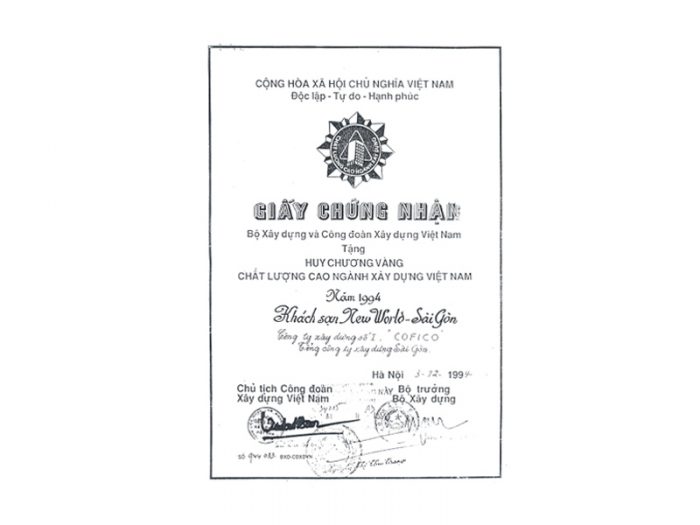 CỘNG HÒA XÃ HỘI CHỦ NGHĨA VIỆT NAM
Độc lập - Tự do - Hạnh phúc
CHẤT LƯỢNG CAO NGÀNH XÂY DỰNG
GIẤY CHỨNG NHẬN
Bộ Xây dựng và Công đoàn Xây dựng Việt Nam
Tặng
HUY CHƯƠNG VÀNG
CHẤT LƯỢNG CAO NGÀNH XÂY DỰNG VIỆT NAM
Năm 1994
Khách sạn New World - Sài Gòn
Công ty xây dựng số 1. "COFICO"
Tổng công ty xây dựng Sài Gòn.
Hà Nội 3-12-1994
Chủ tịch Công đoàn
Xây dựng Việt Nam
Bộ trưởng
Bộ Xây dựng
SỐ BXD-CĐXDVN